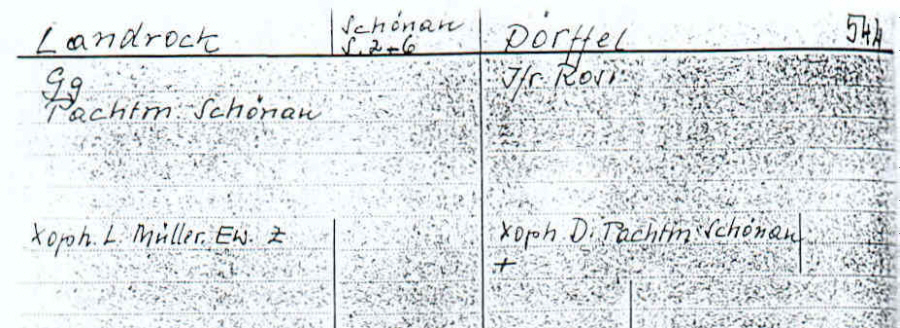 Landrock
Schönau
S. 2+6
Dörffel
544
Gg
Pachtm Schönau
Jfr Rosi
Xoph. L. Müller. Ew. Z
Xoph D. Pachtm Schönau
+